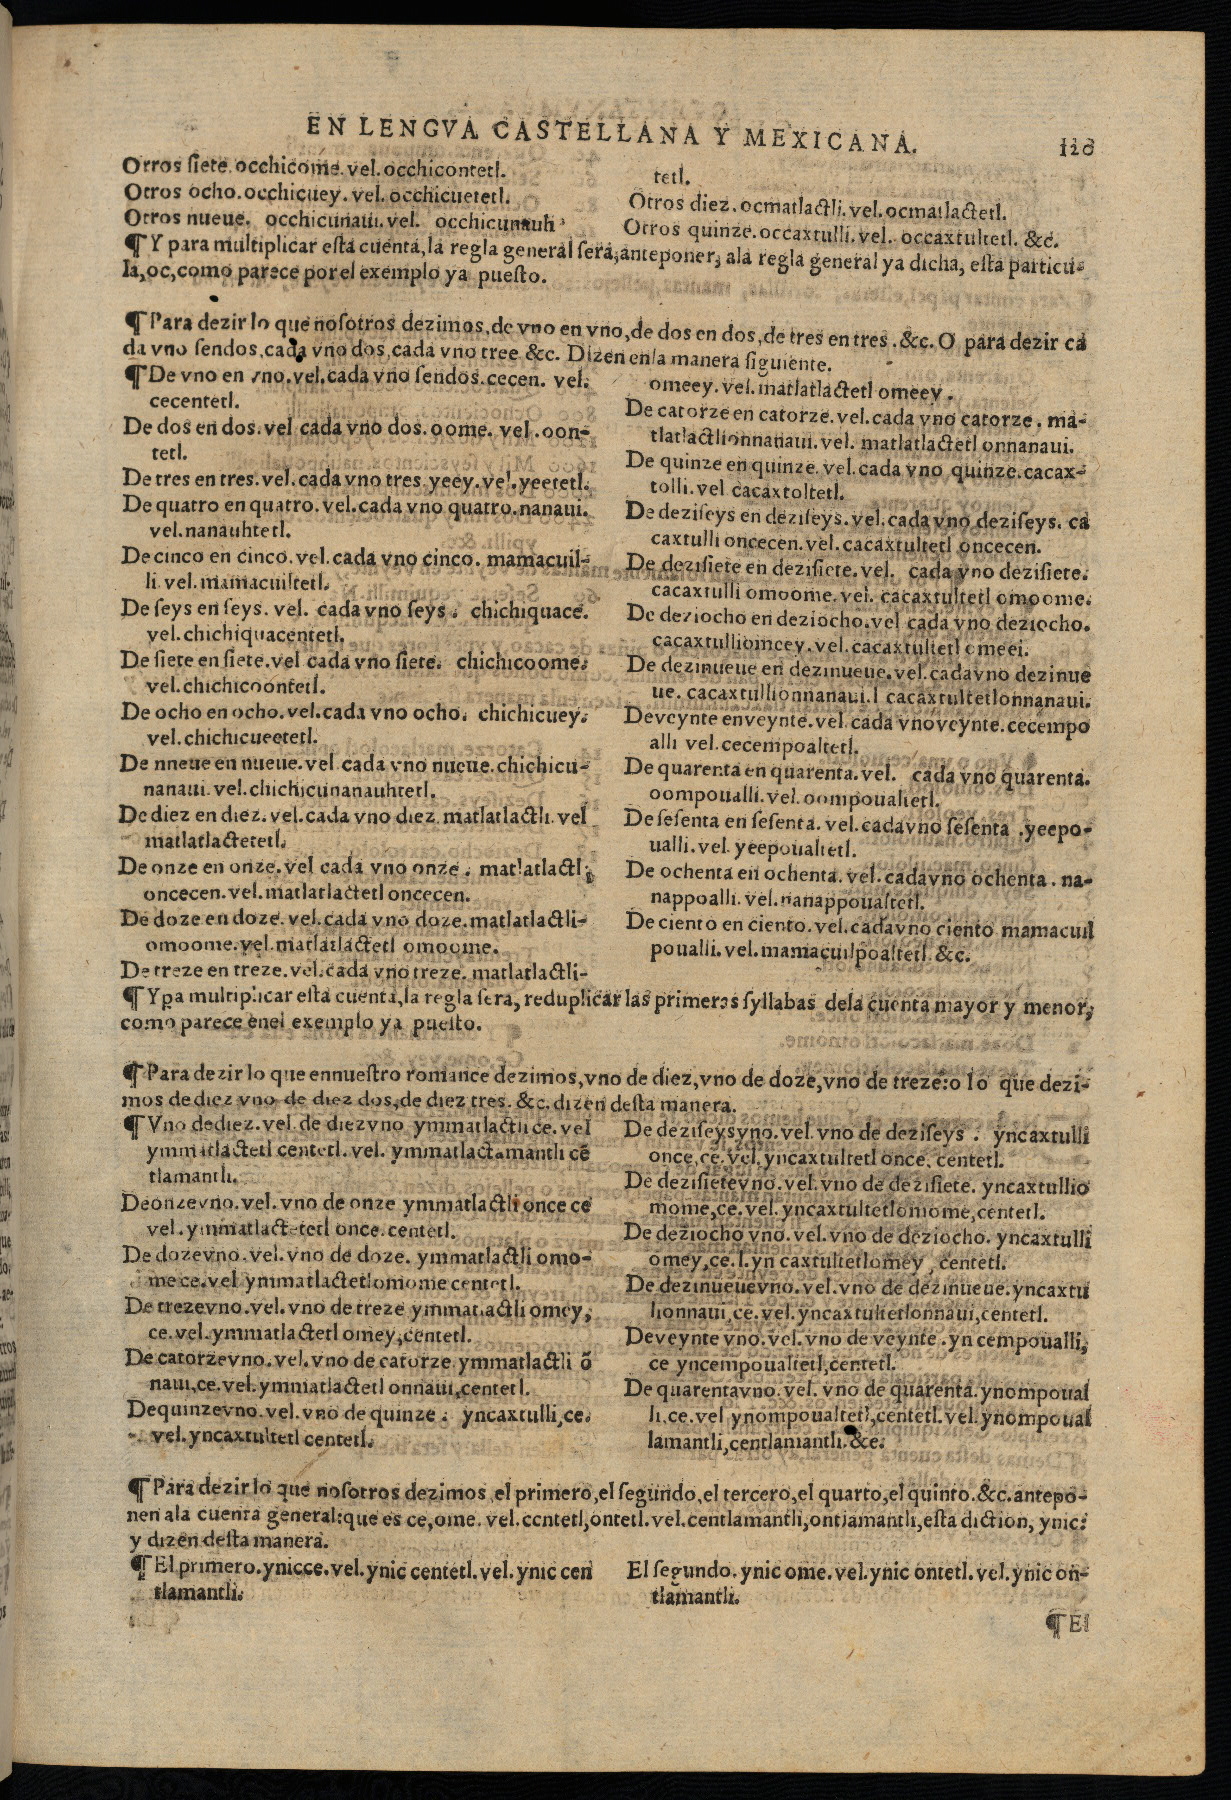 EN LENGVA CASTELLANA Y MEXICANA.
Otros siete. occhicome. vel. occhicontetl.
Otros ocho. occhicuey. vel. occhicuetetl.
Otros nueue. occhicunaui. vel. occhicunauh
tetl.
Otros diez. ocmatlactli. vel. ocmatlactetl.
Otros quinze. occaxtulli. vel. occaxtultetl. &c.
¶ Y para multiplicar esta cuenta, la regla general sera, anteponer, ala regla general ya dicha, esta particu-
la, oc, como parece por el exemplo ya puesto.
¶ Para dezir lo que nosotros dezimos, de vno en vno, de dos en dos, de tres en tres. &c. O para dezir ca
da vno sendos, cada vno dos, cada vno tree &c. Dizen enla manera siguiente.
¶ De vno en vno. vel. cada vno sendos. cecen. vel.
cecentetl.
De dos en dos. vel cada vno dos. oome. vel .oon-
tetl.
De tres en tres. vel. cada vno tres. yeey. vel. yeetetl.
De quatro en quatro. vel. cada vno quatro. nanaui.
vel. nanauhtetl.
De cinco en cinco. vel. cada vno cinco. mamacuil-
li. vel. mamacuiltetl.
De seys en seys. vel. cada vno seys. chichiquace.
vel. chichiquacentetl.
De siete en siete. vel cada vno siete. chichicoome.
vel. chichicoontetl.
De ocho en ocho. vel. cada vno ocho. chichicuey.
vel. chichicueetetl.
De nneue en nueue. vel cada vno nueue. chichicu-
nanaui. vel. chichicunanauhtetl.
De diez en diez. vel. cada vno diez. matlatlactli. vel
matlatlactetetl.
De onze en onze. vel cada vno onze. matlatlactli
oncecen. vel. matlatlactetl oncecen.
De doze en doze. vel. cada vno doze. matlatlactli-
omoome. vel. matlatlactetl omoome.
De treze en treze. vel. cada vno treze. matlatlactli-
omeey. vel. matlatlactetl omeey.
De catorze en catorze. vel. cada vno catorze. ma-
tlatlactlionnanaui. vel. matlatlactetl onnanaui.
De quinze en quinze. vel. cada vno quinze. cacax-
tolli. vel cacaxtoltetl.
De deziseys en deziseys. vel. cada vno deziseys. ca
caxtulli oncecen. vel. cacaxtultetl oncecen.
De dezisiete en dezisiete. vel. cada vno dezisiete.
cacaxtulli omoome. vel. cacaxtultetl omoome.
De deziocho en deziocho. vel cada vno deziocho.
cacaxtulliomeey. vel. cacaxtultetl omeei.
De dezinueue en dezinueue. vel. cadavno dezinue
ue. cacaxtullionnanaui. l cacaxtultetlonnanaui.
Deveynte enveynte. vel cada vnoveynte. cecempo
alli vel. cecempoaltetl.
De quarenta en quarenta. vel. cada vno quarenta.
oompoualli. vel. oompoualtetl.
De sesenta en sesenta. vel. cadavno sesenta .yeepo-
ualli. vel. yeepoualtetl.
De ochenta en ochenta. vel. cadavno ochenta. na-
nappoalli. vel. nanappoualtetl.
De ciento en ciento. vel. cadavno ciento mamacuil
poualli. vel. mamacuilpoaltetl. &c.
¶ Ypa multiplicar esta cuenta, la regla sera, reduplicar las primeras syllabas dela cuenta mayor y menor,
como parece enel exemplo ya puesto.
¶ Para dezir lo que ennuestro romance dezimos, vno de diez, vno de doze, vno de treze: o lo que dezi-
mos de diez vno de diez dos, de diez tres. &c. dizen desta manera.
¶ Vno dediez. vel. de diezvno ymmatlactli ce. vel
ymmatlactetl centetl. vel. ymmatlactamantli cē
tlamantli.
Deonzevno. vel. vno de onze ymmatlactli once ce
vel. ymmatlactetetl once. centetl.
De dozevno. vel. vno de doze. ymmatlactli omo-
me ce. vel ymmatlactetlomome centetl.
De trezevno. vel. vno de treze ymmatlactli omey,
ce. vel. ymmatlactetl omey, centetl.
De catorzevno. vel. vno de catorze ymmatlactli ō
naui, ce. vel. ymmatlactetl onnaui, centetl.
Dequinzevno. vel. vno de quinze. yncaxtulli, ce.
vel. yncaxtultetl centetl.
De deziseysvno. vel. vno de deziseys. yncaxtulli
once, ce. vel. yncaxtultetl once. centetl.
De dezisietevno. vel. vno de dezisiete. yncaxtullio
mome, ce. vel. yncaxtultetlomome, centetl.
De deziocho vno. vel. vno de deziocho. yncaxtulli
omey, ce. l. yn caxtultetlomey, centetl.
De dezinueuevno. vel. vno de dezinueue. yncaxtu
llionnaui, ce. vel. yncaxtultetlonnaui, centetl.
Deveynte vno. vel. vno de veynte. yn cempoualli,
ce yncempoualtetl, centetl.
De quarentavno. vel. vno de quarenta. ynompoual
li. ce. vel ynompoualtetl, centetl. vel. ynompoual
lamantli, centlamantli. &c.
¶ Para dezir lo que nosotros dezimos, el primero, el segundo, el tercero, el quarto, el quinto. &c. antepo-
nen ala cuenta general: que es ce, ome. vel. centetl, ontetl. vel. centlamantli, ontlamantli, esta diction, ynic:
y dizen desta manera.
¶ El primero. ynicce. vel. ynic centetl. vel. ynic cen
tlamantli.
El segundo. ynic ome. vel. ynic ontetl. vel. ynic on-
tlamantli.
¶ El